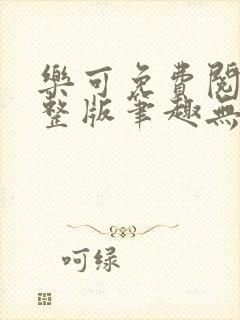 樂可免費閱
整版筆趣無
呵绿